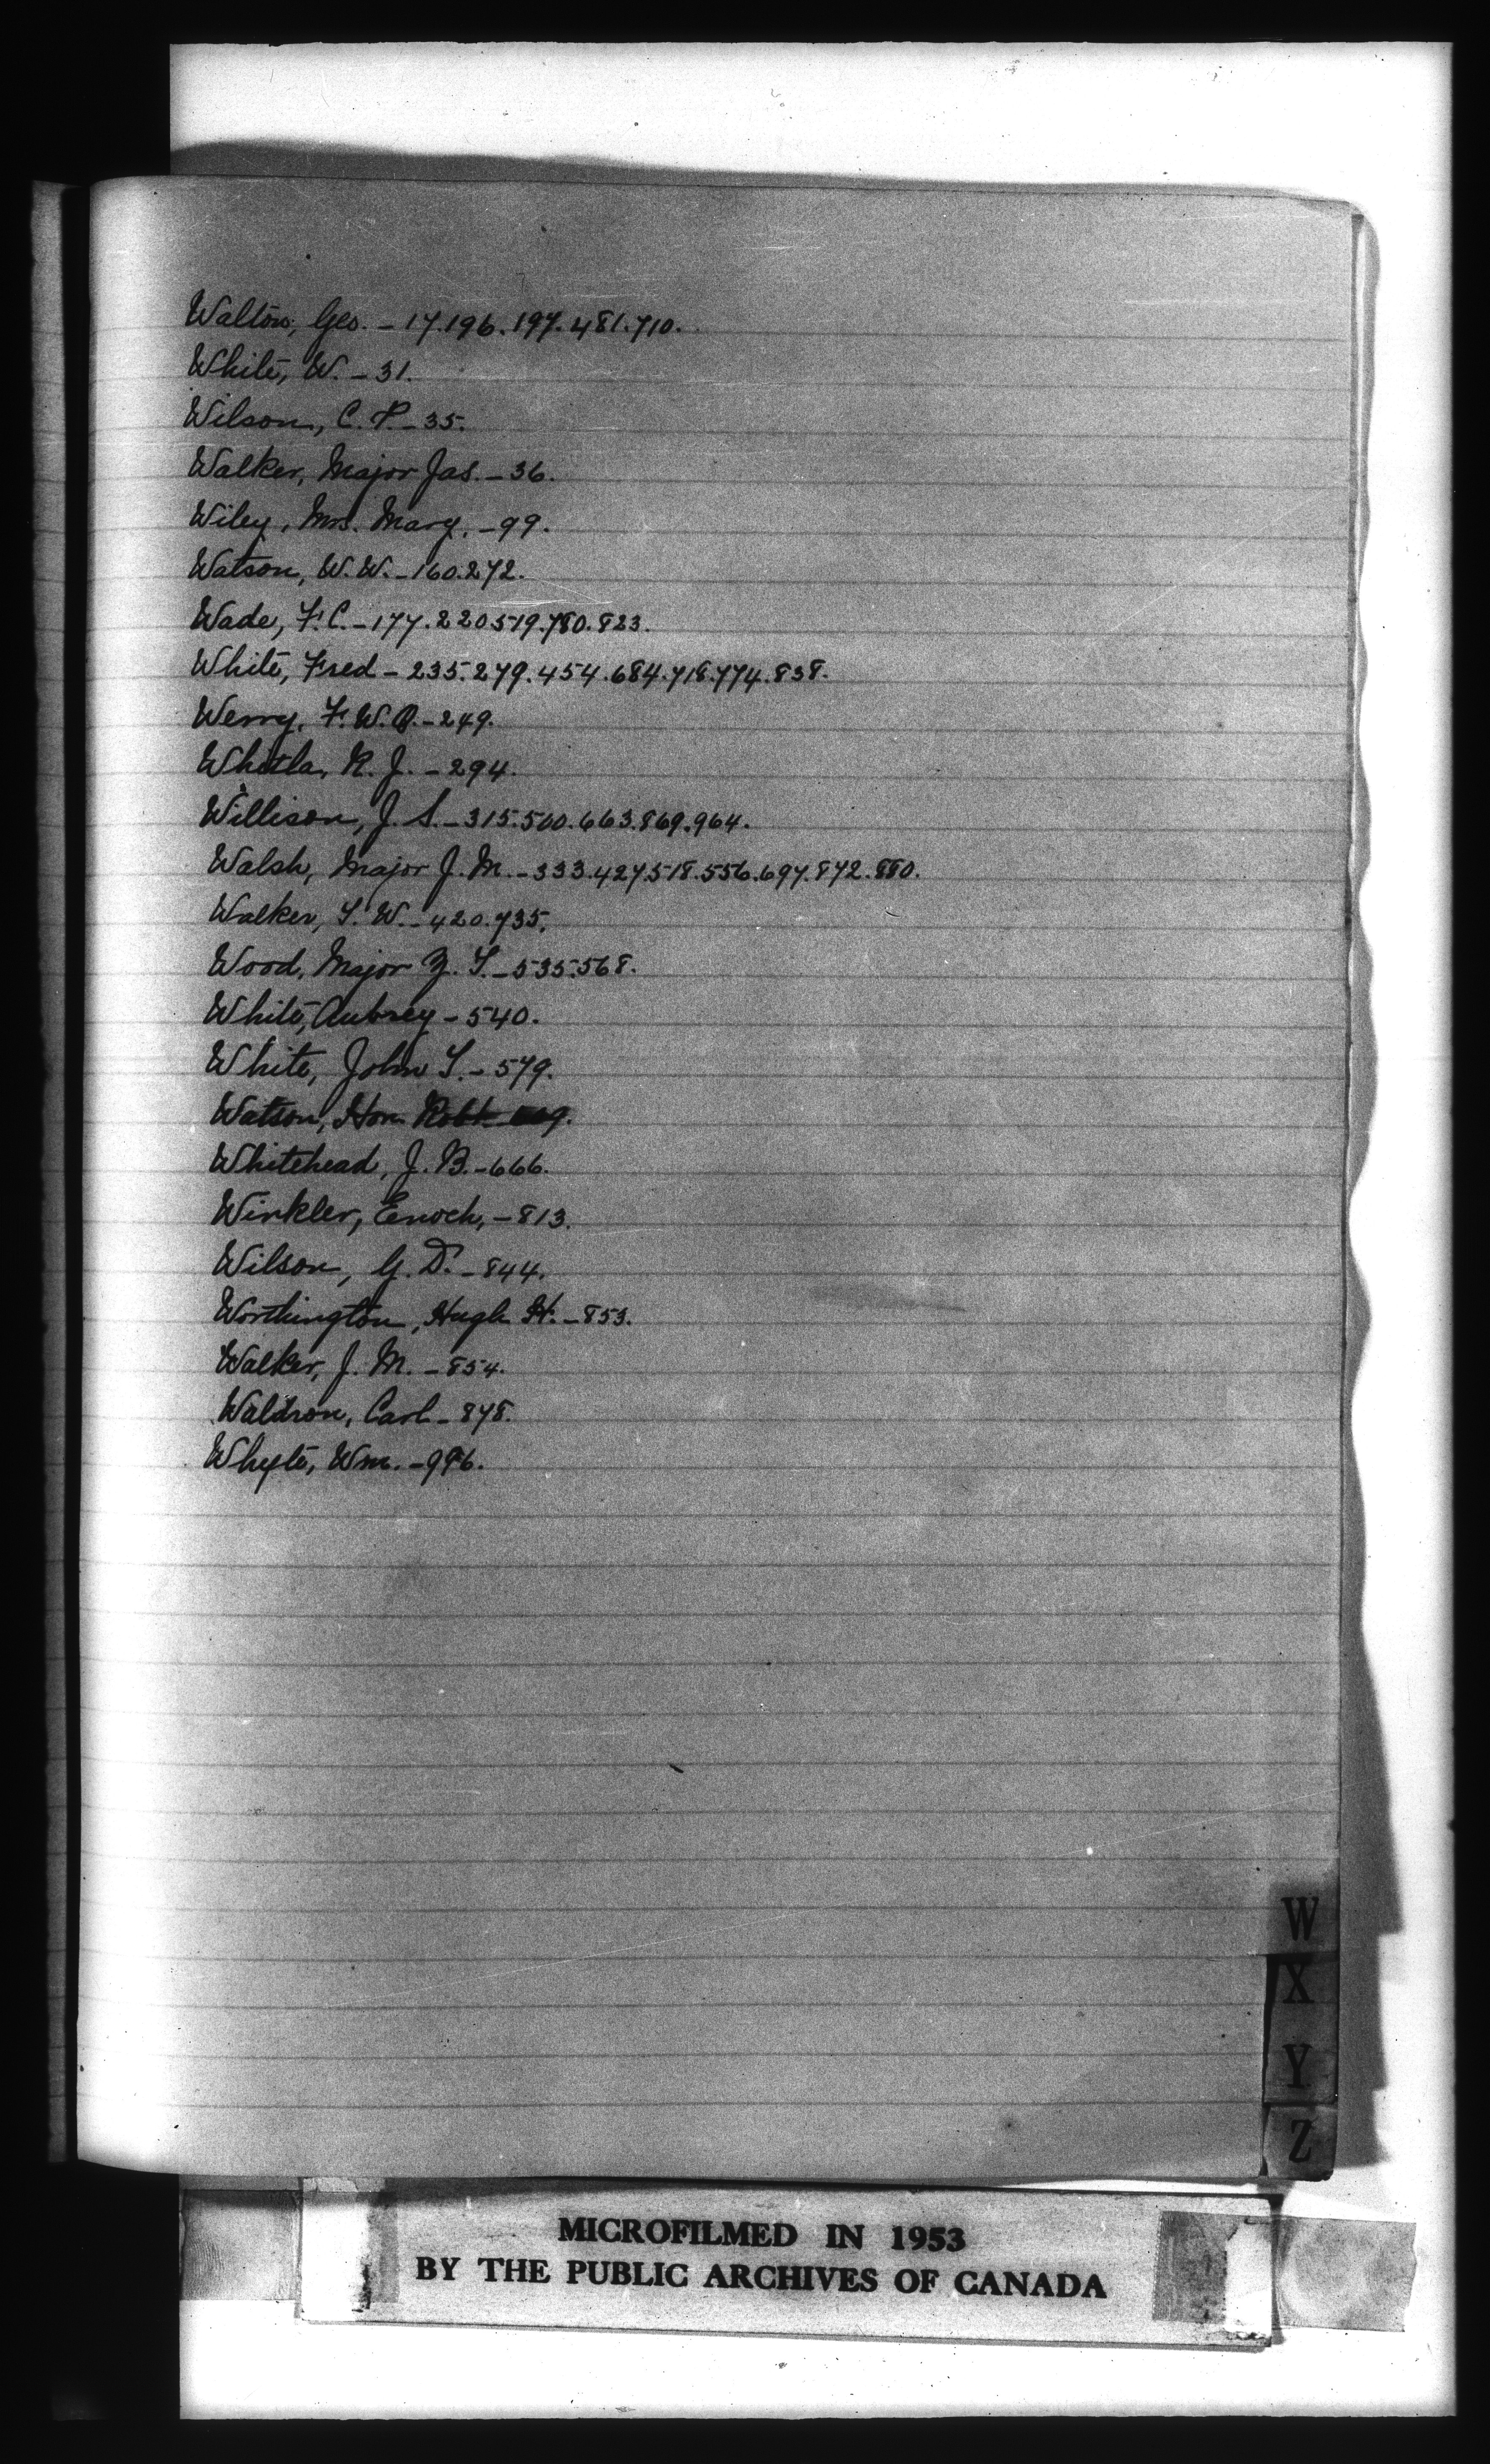 Walton, Geo. - 17.196.197.481.710.
White, W. - 31.
Wilson, C. P. - 35.
Walker, Major Jas. - 36.
Wiley, Mrs. Mary, - 99.
Watson, W. W. - 160.272.
Wade, F. C. - 177.220.519.780.823.
White, Fred - 235.279.454.684.718.774.838.
Werry, F. W. O. - 249.
Whitla, R. J. - 294.
Willison, J. S. - 315.500.663.869.964.
Walsh, Major J. M. - 333.427.518.556.697.872.880.
Walker, T. W. - 420.735.
Wood, Major Z. T. - 535.568.
White, Aubrey - 540.
White, John T. - 579.
Watson, Hon. Robt.
Whitehead, J. B. - 666.
Winkler, Enoch, - 813.
Wilson, G. D. - 844.
Worthington, Hugh H. - 853.
Walker, J. M. - 854.
Waldron, Carl - 878.
Whyte, Wm. -
W
X
Y
Z
MICROFILMED IN 1953
BY THE PUBLIC ARCHIVES OF CANADA